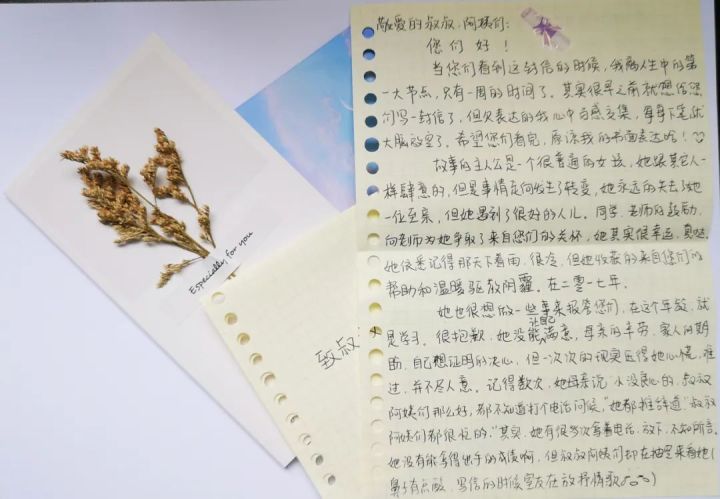 敬爱的叔叔、阿姨们:
您们好!
当您们看到这封信的时候,我离人生中的第
一大节点,只有一周的时间了。其实很早之前就想给您
们写一封信了,但欠表达的我心中百感交集,每每下笔就
大脑放空了。希望您们看完,原谅我的书面表达哈!
故事的主人公是一个很普通的女孩,她跟其它人一
样肆意的,但是事情在何发生了转变,她永远的失去了她
一位至亲,但她遇到了很好的人儿。同学、老师的鼓励,
向老师为她争取了来自您们的关怀,她其实很幸运,真哒,
她依悉记得那天下着雨,很冷,但她收获的来自您们的
帮助和温暖驱散阴霾。在二零一七年。
她也很想做一些事来报答您们,在这个年龄,就
是学习。很抱歉,她没能让自己满意,母亲的辛劳、家人的期
盼、自己想证明的决心,但一次次的现实压得她心慌,难
过,并不尽人意。记得数次,她母亲说"小没良心的,叔叔
阿姨们那么好,都不知道打个电话问候。"她都推辞道"叔叔
阿姨们都很忙的。"其实,她有很多次拿着电话,放下,不知所言。
她没有能拿得出手的成绩啊,但叔叔阿姨们却在抽空来看她(
鼻子有点酸,写信的时候室友在放抒情歌
Especially for you
致叔